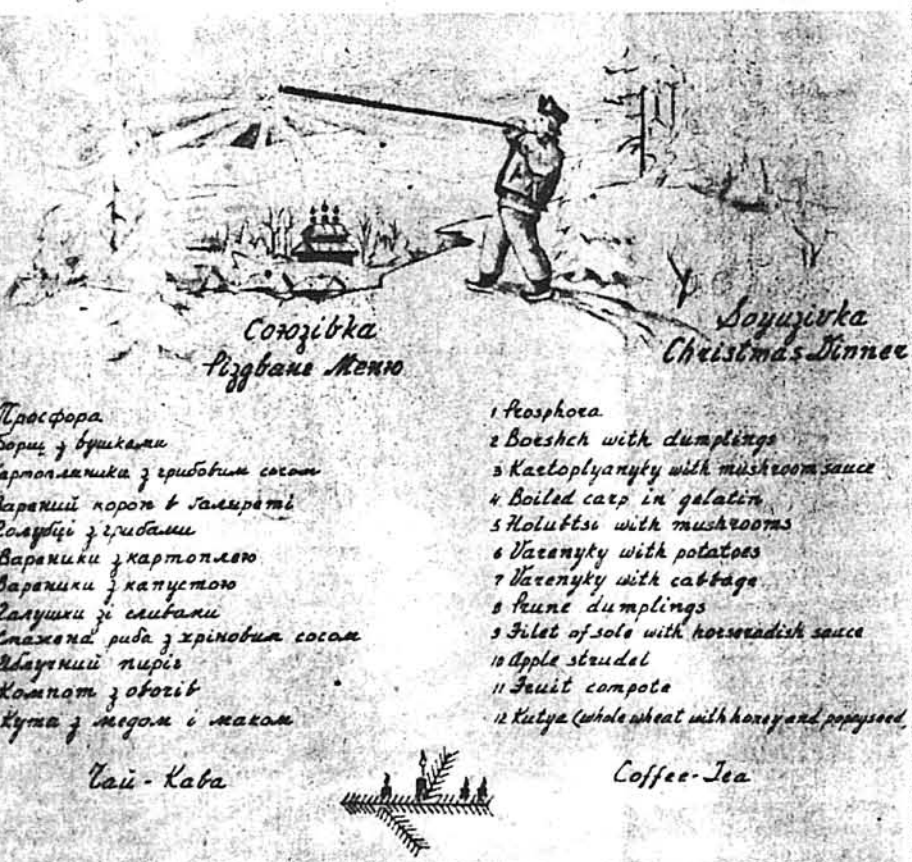 Союзівка
Різдвяне Меню
Просфора
Борщ з вушками
Картопляники з грибовим сосом
Варений короп в галяреті
Голубці з грибами
Вареники з картоплею
Вареники з капустою
Галушки зі сливами
Смажена риба з хріновим сосом
Яблучний пиріг
Компот з овочів
Кутя з медом і маком
Чай - Кава
Soyuzivka
Christmas Dinner
1 Prosphora
2 Borshch with dumplings
3 Kartoplyanyky with mushroom sauce
4 Boiled carp in gelatin
5 Holubtsi with mushrooms
6 Varenyky with potatoes
7 Varenyky with cabbage
8 Prune dumplings
9 Filet of sole with horseradish sauce
10 Apple strudel
11 Fruit compote
12 Kutya (whole wheat with honey and poppyseed
Coffee-Tea